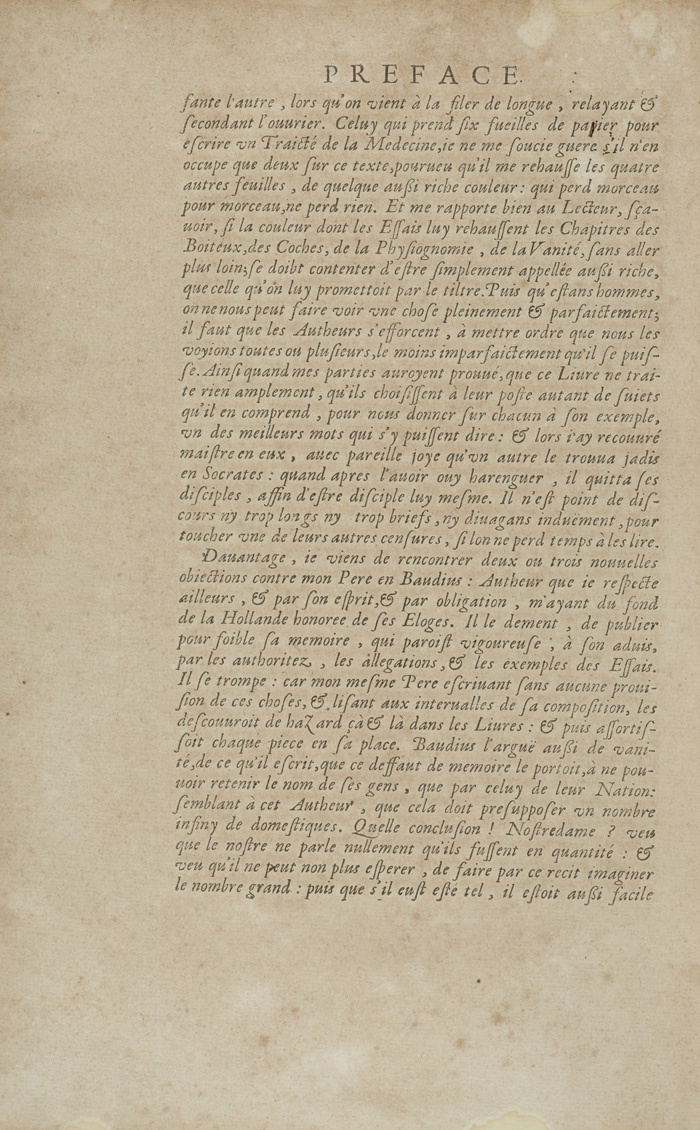 PREFACE.
sante l'autre, lors qu'on vient à la filer de longue, relayant &
secondant l'ouurier. Celuy qui prend six fueilles de papier pour
escrire vn Traicté de la Medecine, ie ne me soucie guere s'il n'en
occupe que deux sur ce texte, pourueu qu'il me rehausse les quatre
autres feuilles, de quelque aussi riche couleur: qui perd morceau
pour morceau, ne perd rien. Et me rapporte bien au Lecteur, sça-
uoir, si la couleur dont les Essais luy rehaussent les Chapitres des
Boiteux, des Coches, de la Physiognomie, de la Vanité, sans aller
plus loin; se doibt contenter d'estre simplement appellée aussi riche,
que celle qu'on luy promettoit par le tiltre. Puis qu'estans hommes,
on ne nous peut faire voir vne chose pleinement & parfaictement;
il faut que les Autheurs s'efforcent, à mettre ordre que nous les
voyions toutes ou plusieurs, le moins imparfaictement qu'il se puis-
se. Ainsi quand mes parties auroyent prouué, que ce Liure ne trai-
te rien amplement, qu'ils choisissent à leur poste autant de suiets
qu'il en comprend, pour nous donner sur chacun à son exemple,
vn des meilleurs mots qui s'y puissent dire: & lors i'ay recouuré
maistre en eux, auec pareille joye qu'vn autre le trouua jadis
en Socrates: quand apres l'auoir ouy harenguer, il quitta ses
disciples, affin d'estre disciple luy mesme. Il n'est point de dis-
cours ny trop longs ny trop briefs, ny diuagans induëment, pour
toucher vne de leurs autres censures, si lon ne perd temps à les lire.
Dauantage, ie viens de rencontrer deux ou trois nouuelles
obiections contre mon Pere en Baudius: Autheur que ie respecte
ailleurs, & par son esprit, & par obligation, m'ayant du fond
de la Hollande honoree de ses Eloges. Il le dement, de publier
pour foible sa memoire, qui paroist vigoureuse, à son aduis,
par les authoritez, les allegations, & les exemples des Essais.
Il se trompe: car mon mesme Pere escriuant sans aucune proui-
sion de ces choses, & lisant aux interualles de sa composition, les
descouuroit de hazard çà & là dans les Liures: & puis assortis-
soit chaque piece en sa place. Baudius l'arguë aussi de vani-
té, de ce qu'il escrit, que ce deffaut de memoire le portoit, à ne pou-
uoir retenir le nom de ses gens, que par celuy de leur Nation:
semblant à cet Autheur, que cela doit presupposer vn nombre
infiny de domestiques. Quelle conclusion! Nostredame? veu
que le nostre ne parle nullement qu'ils fussent en quantité: &
veu qu'il ne peut non plus esperer, de faire par ce recit imaginer
le nombre grand: puis que s'il eust esté tel, il estoit aussi facile